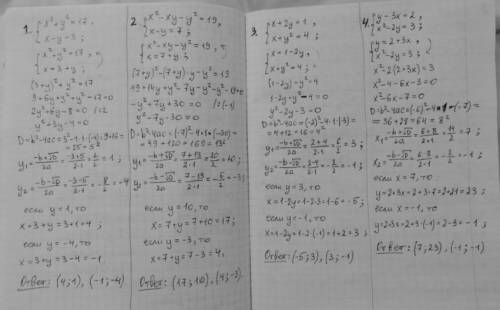 1. { x²+y²=17,
x-y=3;
{ x²+y²=17,
x=3+y;
(3+y)²+y²=17
9+6y+y²+y²-17=0
2y²+6y-8=0 |:2
y²+3y-4=0
D=b²-4ac=3²-4·1·(-4)=9+16=
=25=5²
y₁=(-b+√D)/2a=(-3+5)/(2·1)=2/2=1;
y₂=(-b-√D)/2a=(-3-5)/(2·1)=-8/2=-4
если y=1, то
x=3+y=3+1=4;
если y=-4, то
x=3+y=3-4=-1
Ответ: (4;1), (-1;-4)
2. { x²-xy-y²=19,
x-y=7;
{ x²-xy-y²=19,
x=7+y;
(7+y)²-(7+y)·y-y²=19
49+14y+y²-7y-y²-y²-19=0
-y²+7y+30=0 |:(-1)
y²-7y-30=0
D=b²-4ac=(-7)²-4·1·(-30)=
=49+120=169=13²
y₁=(-b+√D)/2a=(7+13)/(2·1)=20/2=10;
y₂=(-b-√D)/2a=(7-13)/(2·1)=-6/2=-3;
если y=10, то
x=7+y=7+10=17;
если y=-3, то
x=7+y=7-3=4.
Ответ: (17;10), (4;-3)
3. { x+2y=1,
x+y²=4;
{ x=1-2y,
x+y²=4;
(1-2y)+y²=4
1-2y+y²-4=0
y²-2y-3=0
D=b²-4ac=(-2)²-4·1·(-3)=
=4+12=16=4²
y₁=(-b+√D)/2a=(2+4)/(2·1)=6/2=3;
y₂=(-b-√D)/2a=(2-4)/(2·1)=-2/2=-1;
если y=3, то
x=1-2y=1-2·3=1-6=-5;
если y=-1, то
x=1-2y=1-2·(-1)=1+2=3;
Ответ: (-5;3), (3;-1)
4. { y-3x=2,
x²-2y=3;
{ y=2+3x,
x²-2y=3;
x²-2(2+3x)=3
x²-4-6x-3=0
x²-6x-7=0
D=b²-4ac=(-6)²-4·1·(-7)=
=36+28=64=8²
x₁=(-b+√D)/2a=(6+8)/(2·1)=14/2=7;
x₂=(-b-√D)/2a=(6-8)/(2·1)=-2/2=-1;
если x=7, то
y=2+3x=2+3·7=2+21=23;
если x=-1, то
y=2+3x=2+3·(-1)=2-3=-1;
Ответ: (7;23), (-1;-1)